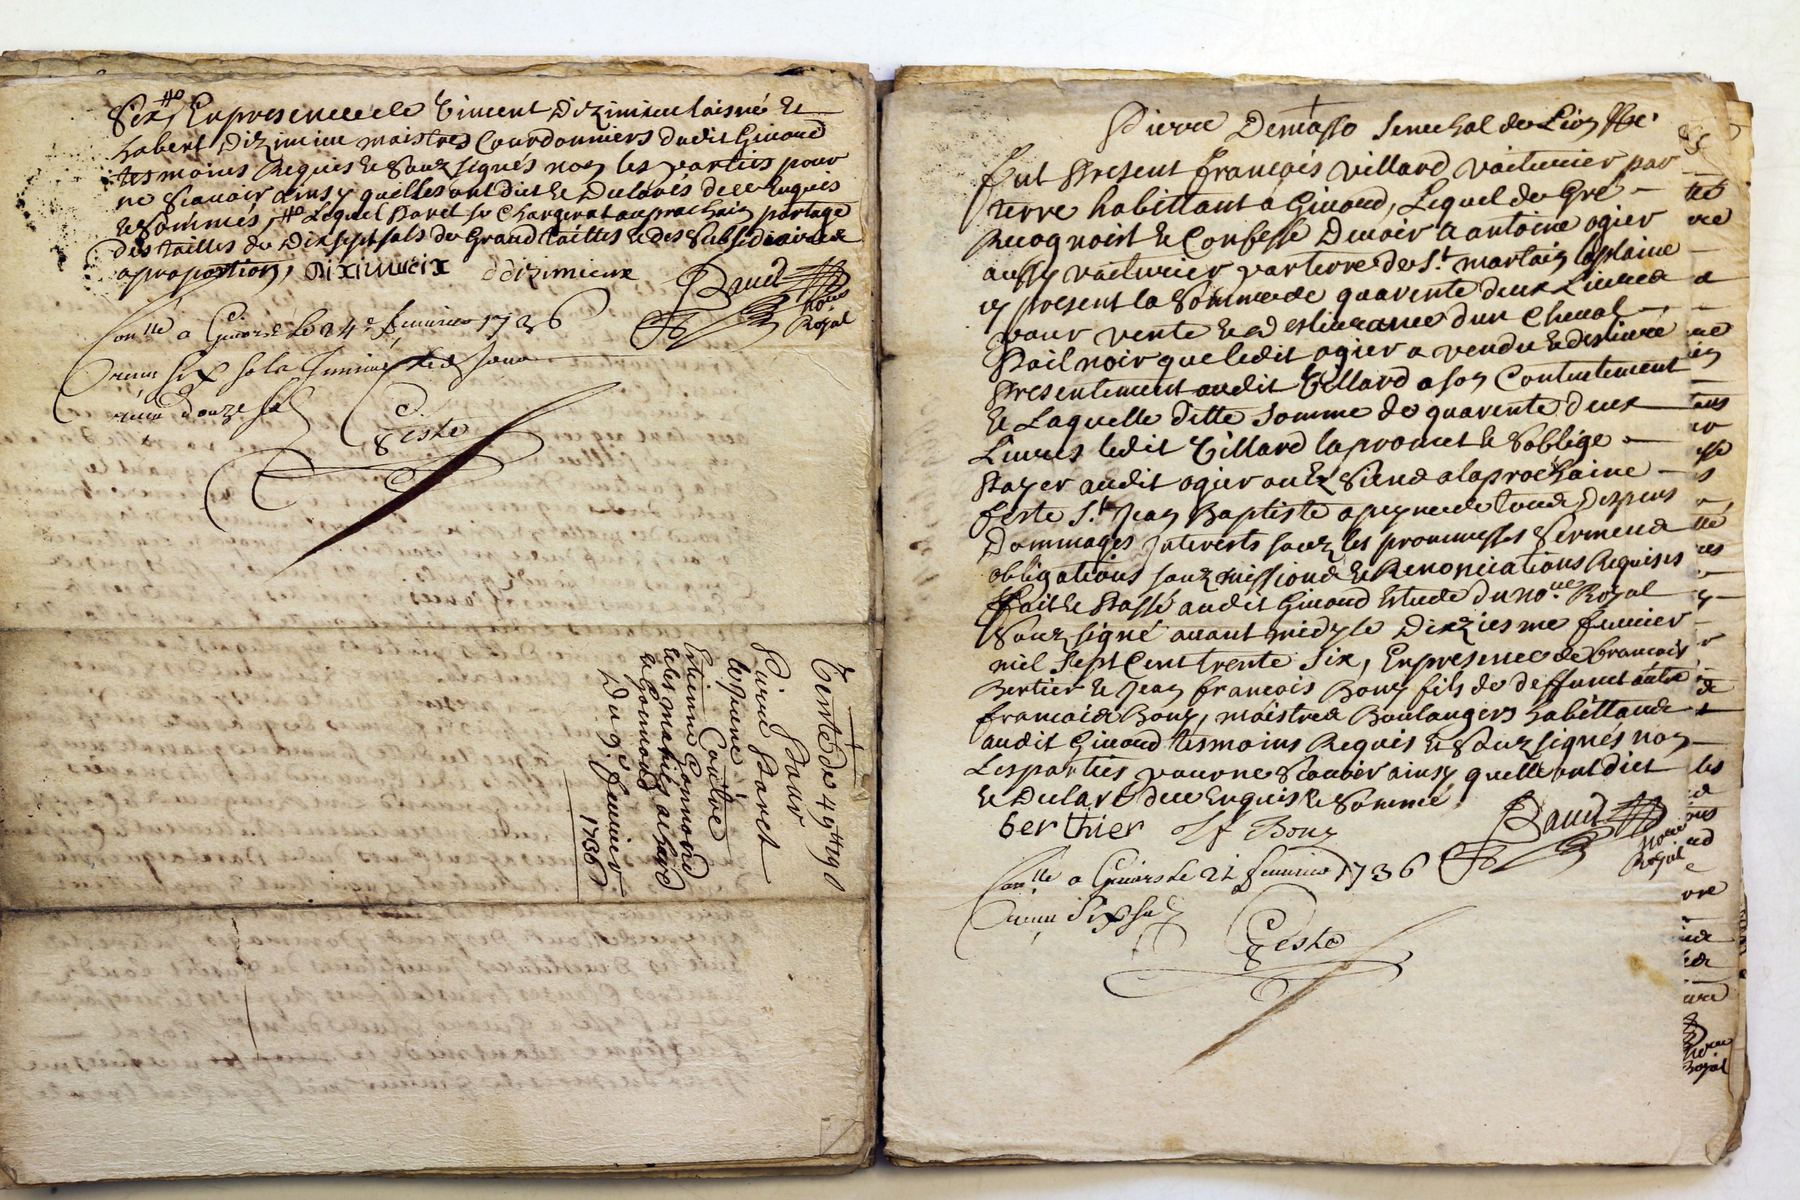 Six, ++ En presence de Vincent Dizimieu laisné &
habert Dizimieu maistres Courdonniers dudit Givord
tesmoins Requis & Sousignés non les parties pour
ne Scavoir ainsy quelles ont dict & Declarés de ce Enquis
& Sommés, ++ Lequel Baret se Chargera au prochain partage
des tailles de Dixsept sols de Grand tailles & des Subsidiaires
a proportion, Diximieux dizimieux
Baud
no.re
Royal
Con.lle a Givors Le 24e fevrier 1736
Receu six sols
receu douze sols
Geste
Vente de 49 ₶ 19 d
Pour
Pierre Baret
lespiene
Contre
Estienne Gomond
& les mariés
& Gomond
Du 9e fevrier
1736
Pierre Demasso Senechal de Lion
fut Present françois Villard voiturier par
terre habittant a Givord, Lequel de Gré
Recognoist & Confesse Devoir a antoine ogier
aussy voiturier par terre de St. martain la plaine
icy present la Somme de quarente deux Livres
pour vente & deslivrance d'un Cheval
Poil noir que ledit ogier a vendu & deslivré
Presentement audit Villard a son Contentement
& Laquelle ditte Somme de quarente deux
Livres ledit Villard la promet & Soblige
Payer audit ogier ou aux Siens a la prochaine
feste St. Jean Baptiste a peyne de tous Despens
Dommages Interests sous les promesses Serments
obligations sousmissions & Renonciations Requises
ffait & Passé audit Givord Estude du no.re Royal
Sousigné avant midy le Dixziesme fevrier
mil Sept Cent trente Six, En presence de francois
Bertier & Jean françois Bony fils de deffunct autre
francois Bony, maistres Boulangers habittands
audit Givord tesmoins Requis & Sousignés non
Les parties pour ne Scavoir ainsy quelle ont dict
& Declaré de ce Enquis & Sommé
berthier Jf Bony
Baud
no.re
Royal
Con.lle a Givors Le 21 fevrier 1736
Receu Six sols
Geste
no.re
Royal